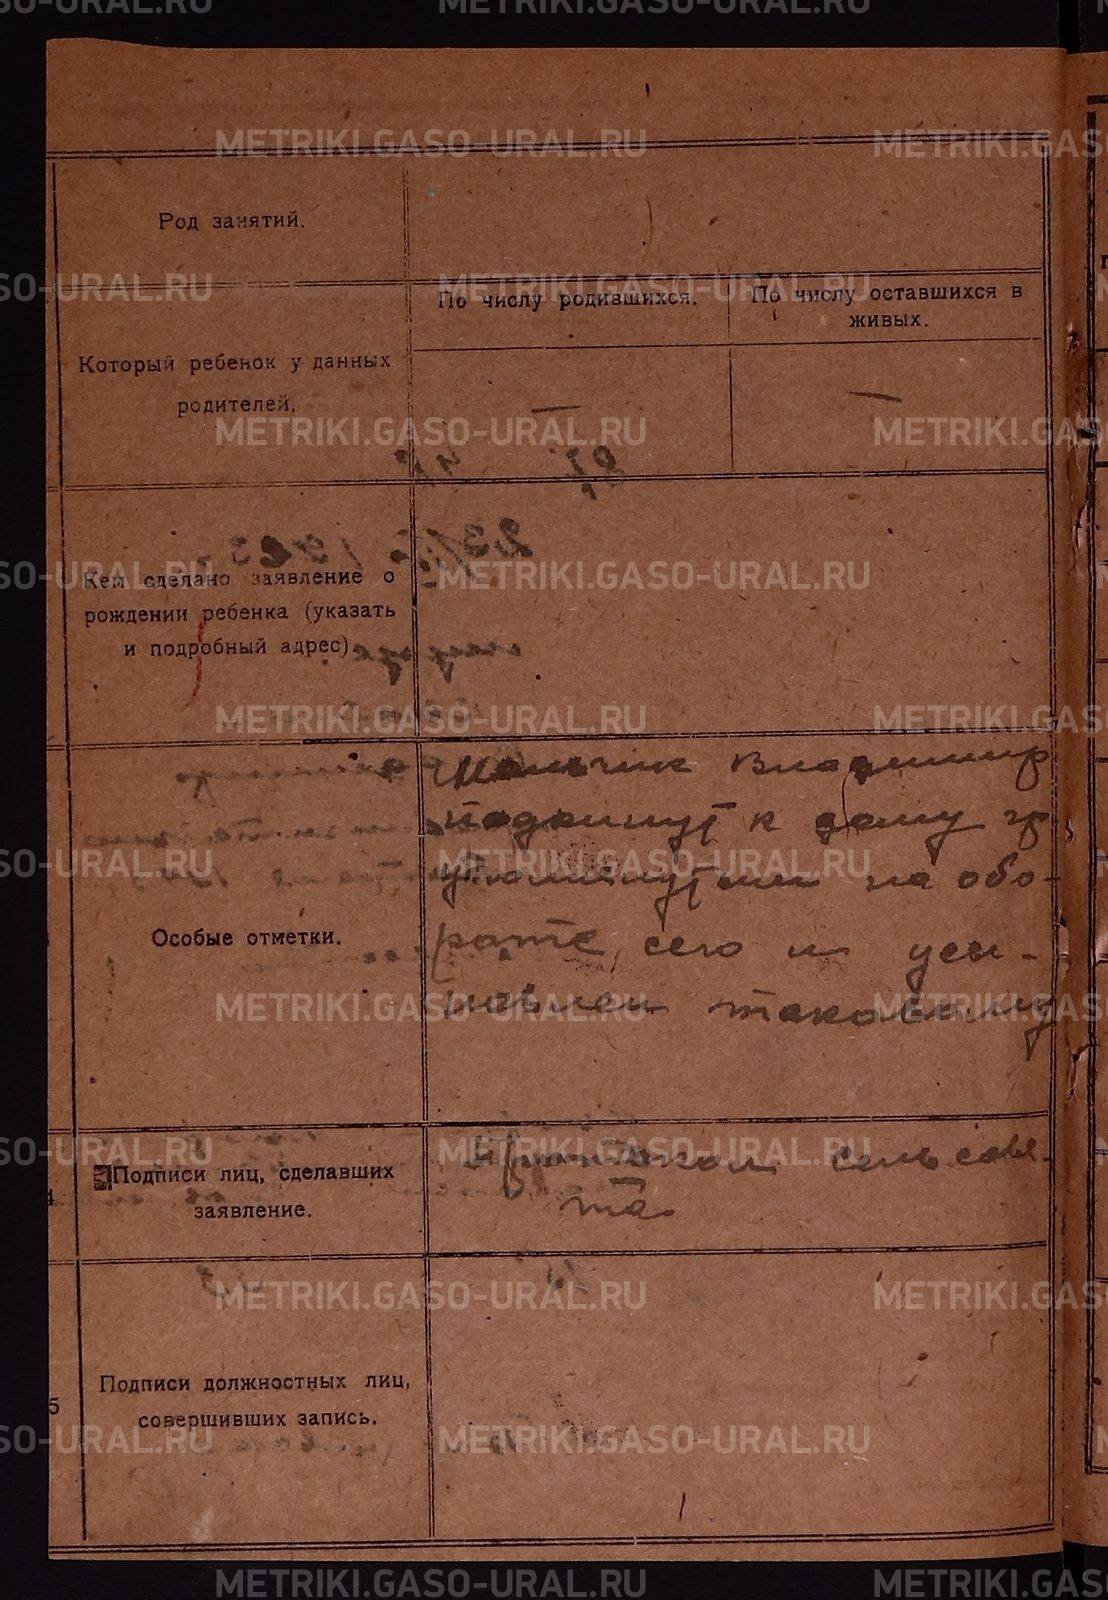 Род занятий.
Который ребенок у данных
родителей,
По числу родившихся.
По числу оставшихся в
живых.
—
—
Кем сделано заявление о
рождении ребенка (указать
и подробный адрес)
Особые отметки.
Мальчик Владимир
подкинут к дому гр
упомянутым на обо-
роте сего и усы-
новлен таковому
4
Подписи лиц, сделавших
заявление.
Протокол сельсове-
та
5
Подписи должностных лиц,
совершивших запись.
METRIKI.GASO-URAL.RU